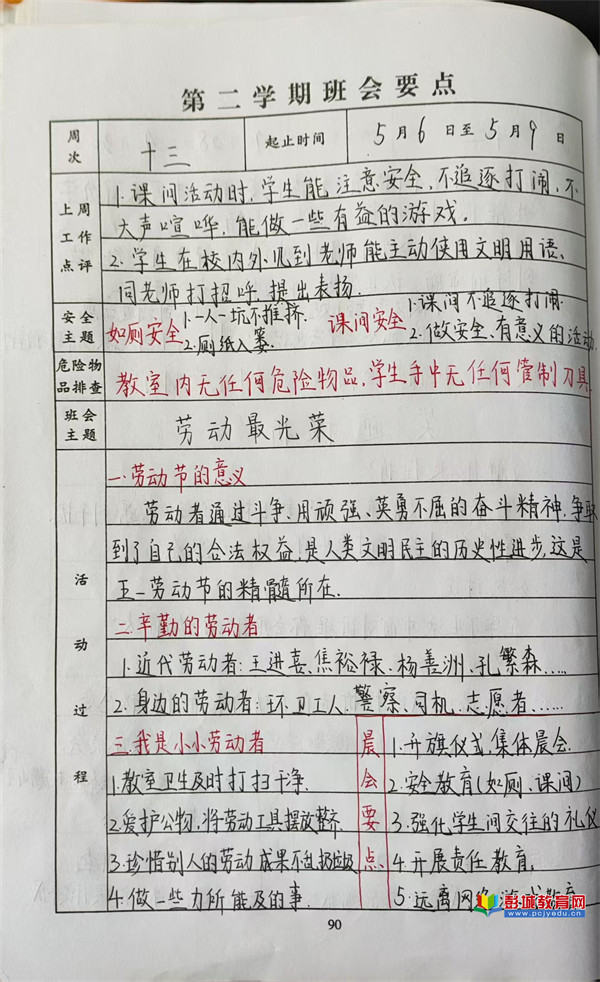 第二学期班会要点
周次 十三 起止时间 5月6日至5月9日
上周工作点评
1.课间活动时,学生能注意安全,不追逐打闹,不
大声喧哗,能做一些有益的游戏.
2.学生在校内外见到老师能主动使用文明用语、
同老师打招呼,提出表扬.
安全主题
如厕安全 1.一人一坑不推挤. 2.厕纸入篓.
课间安全 1.课间不追逐打闹. 2.做安全、有意义的活动.
危险物品排查
教室内无任何危险物品,学生手中无任何管制刀具
班会主题
劳动最光荣
活动过程
一.劳动节的意义
劳动者通过斗争、用顽强、英勇不屈的奋斗精神,争取
到了自己的合法权益,是人类文明民主的历史性进步,这是
五一劳动节的精髓所在.
二.辛勤的劳动者
1.近代劳动者:王进喜、焦裕禄、杨善洲、孔繁森……
2.身边的劳动者:环卫工人、警察、司机、志愿者……
三.我是小小劳动者
1.教室卫生及时打扫干净.
2.爱护公物,将劳动工具摆放整齐.
3.珍惜别人的劳动成果不乱扔垃圾
4.做一些力所能及的事.
晨会要点
1.升旗仪式,集体晨会.
2.安全教育(如厕、课间)
3.强化学生间交往的礼仪
4.开展责任教育.
5.远离网络
彭城教育网
www.pcjyedu.cn
90